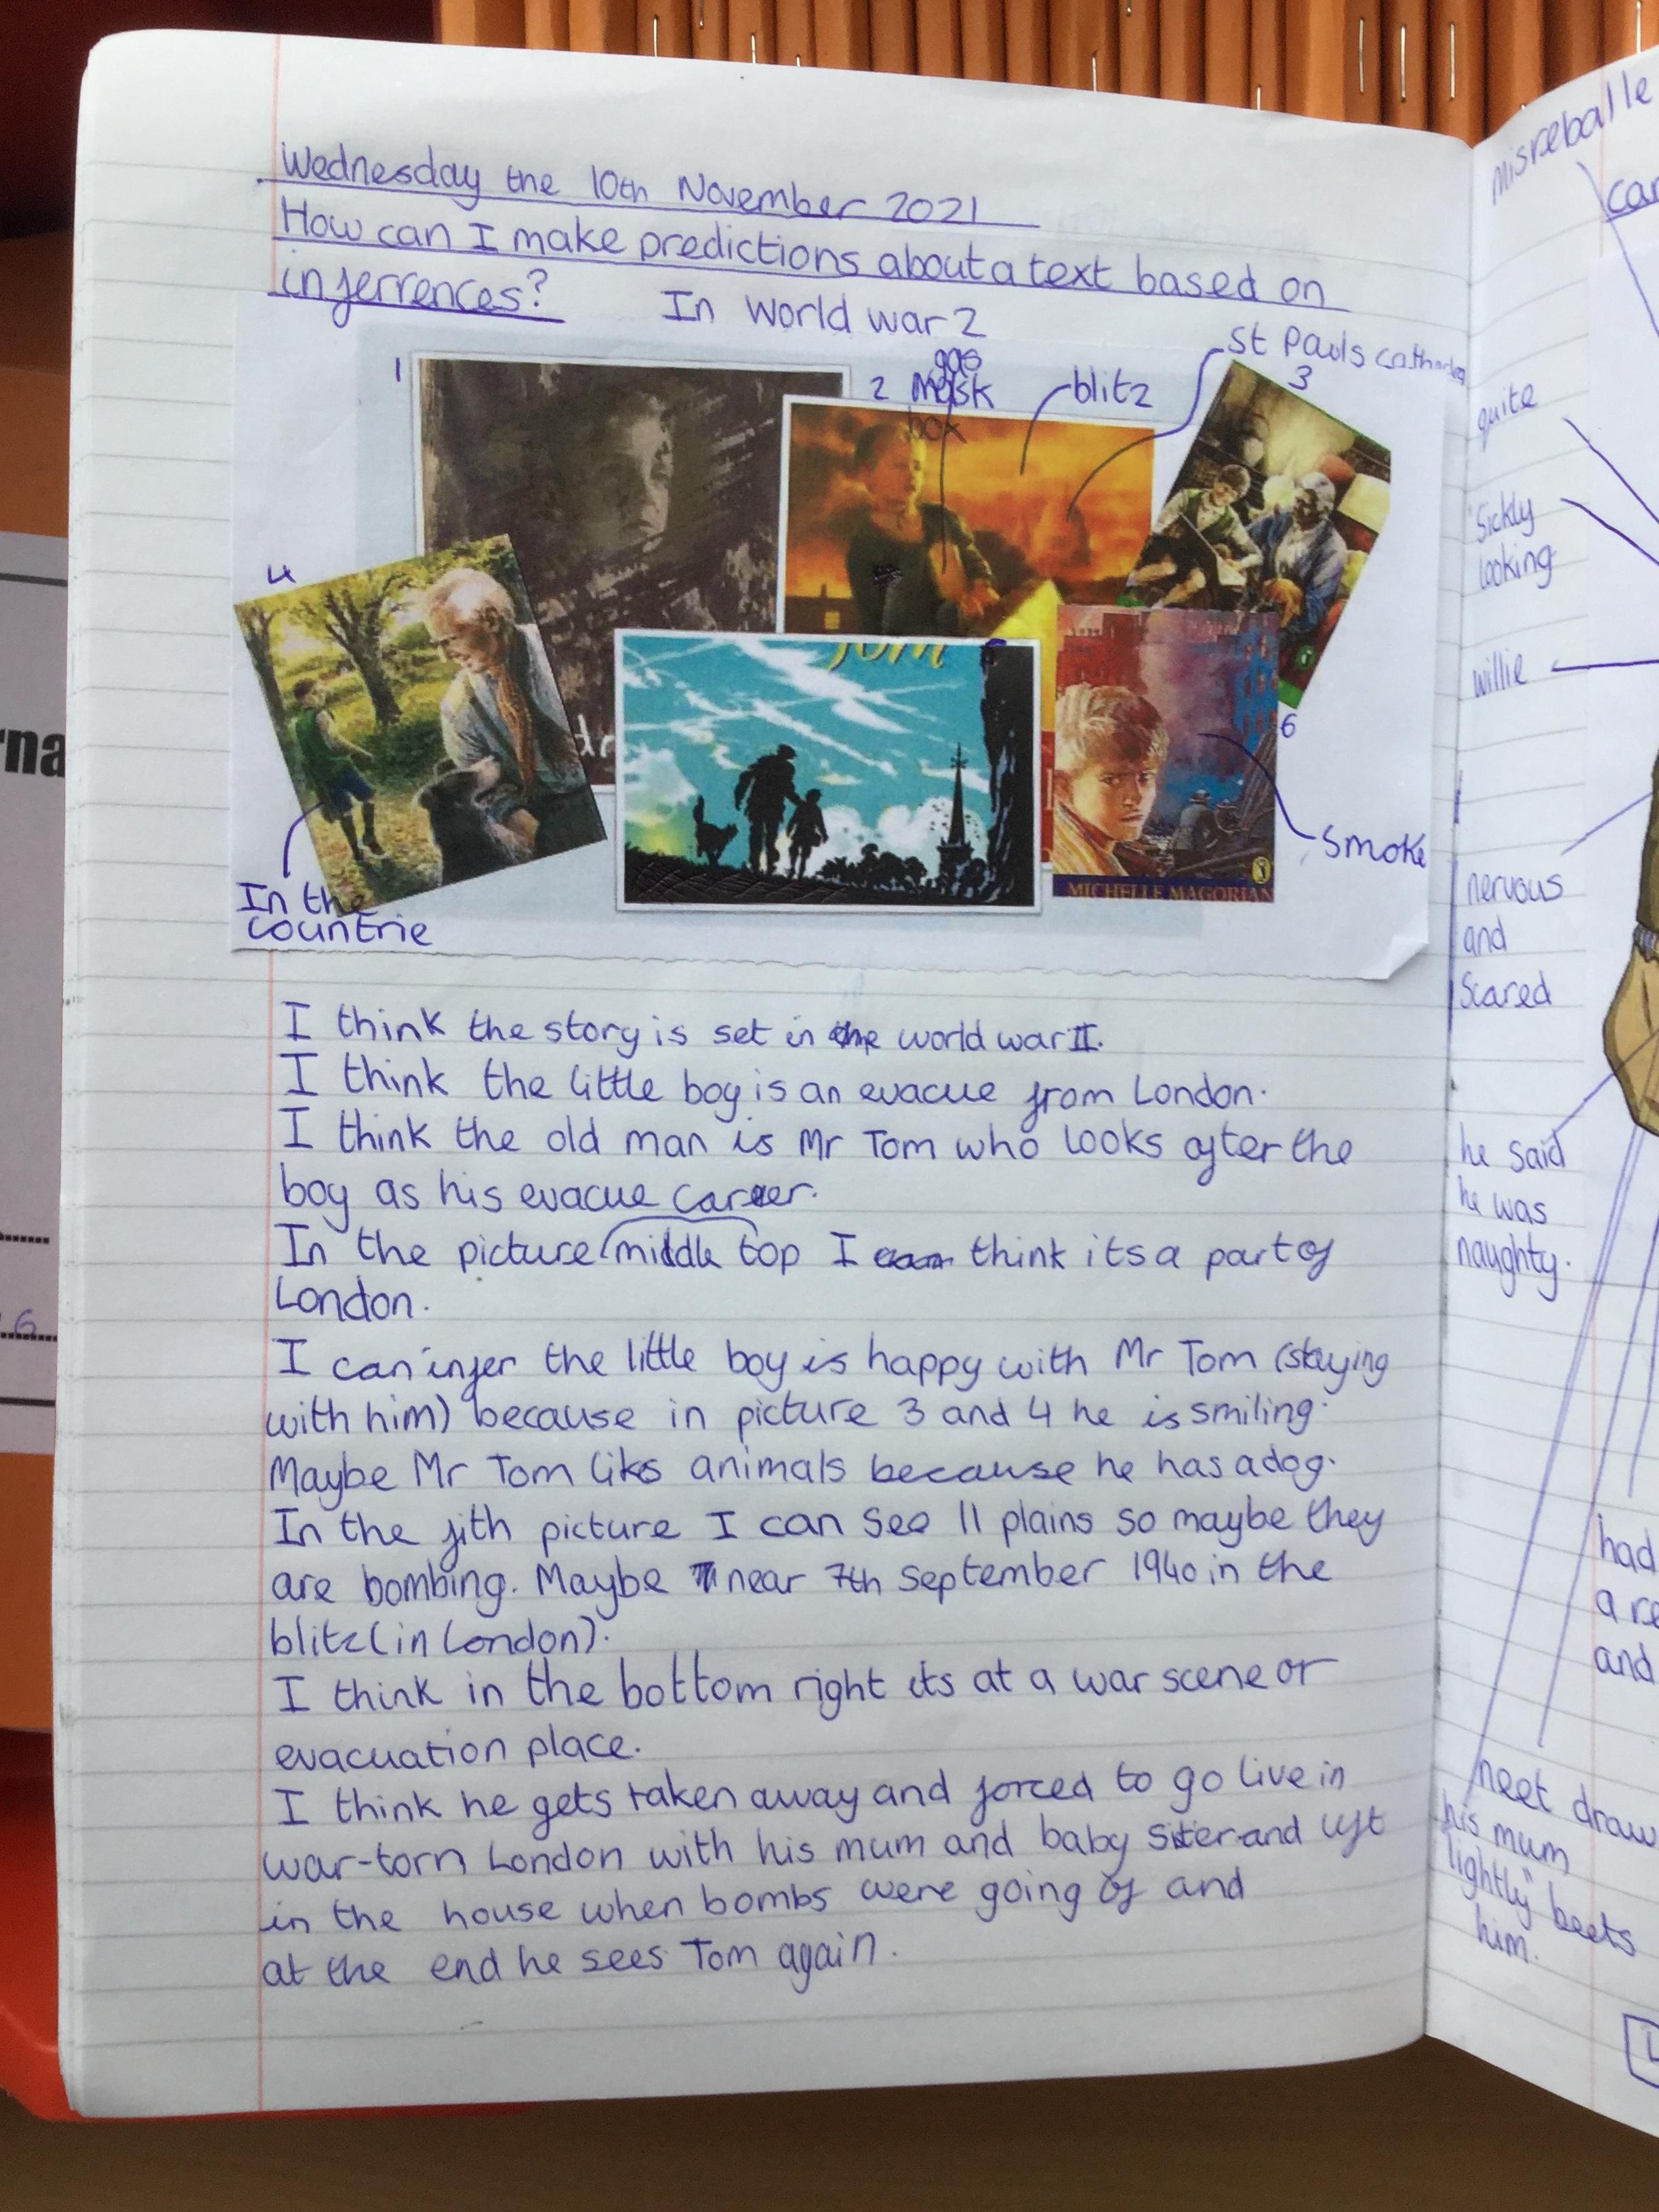 Wednesday the 10th November 2021
How can I make predictions about a text based on
inferrences?
In World war 2
1
2
gas
mask
box
blitz
St Pauls
3
4
Tom
6
smoke
MICHELLE MAGORIAN
In the
countrie
I think the story is set in the world war II.
I think the little boy is an evacue from London.
I think the old man is Mr Tom who looks after the
boy as his evacue carer.
In the picture middle top I think its a part of
London.
I can infer the little boy is happy with Mr Tom (staying
with him) because in picture 3 and 4 he is smiling.
Maybe Mr Tom likes animals because he has a dog.
In the fith picture I can see 11 plains so maybe they
are bombing. Maybe near 7th September 1940 in the
blitz (in London).
I think in the bottom right its at a war scene or
evacuation place.
I think he gets taken away and forced to go live in
war-torn London with his mum and baby siter and left
in the house when bombs were going of and
at the end he sees Tom again.
misreballe
car
quite
sickly
looking
willie
nervous
and
scared
he said
he was
naughty.
had
a re
and
neet draw
his mum
lightly" beets
him.
rna
6